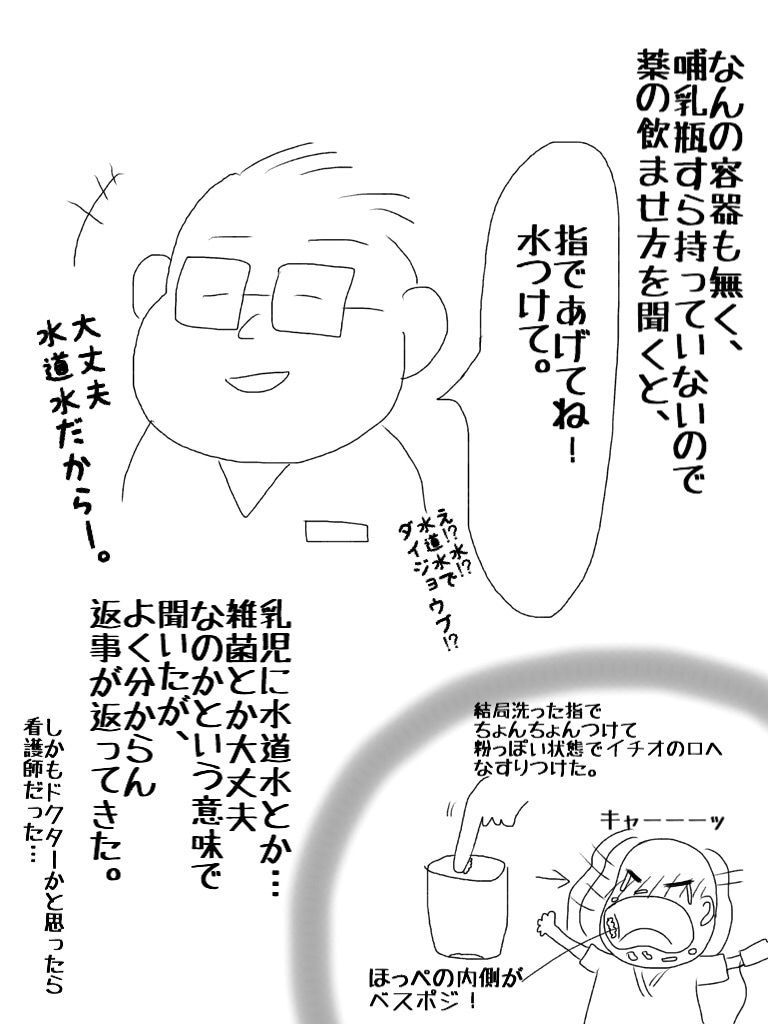 なんの容器も無く、
哺乳瓶すら持っていないので
薬の飲ませ方を聞くと、
指であげてね！
水つけて。
大丈夫
水道水だからー。
え!?水!?
水道水で
ダイジョウブ!?
乳児に水道水とか…
雑菌とか大丈夫
なのかという意味で
聞いたが、
よく分からん
返事が返ってきた。
しかもドクターかと思ったら
看護師だった…
結局洗った指で
ちょんちょんつけて
粉っぽい状態でイチオの口へ
なすりつけた。
キャーーーッ
ほっぺの内側が
ベスポジ！